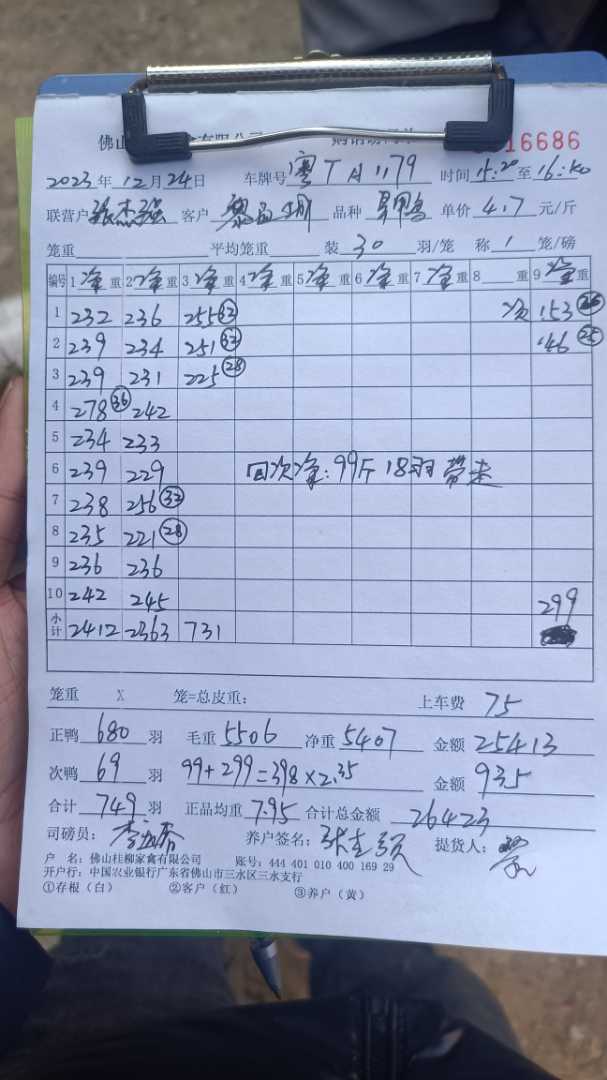 佛山 禽有限公司 购销 16686
2023年12月24日 车牌号 粤TA1179 时间 15:20至16:50
联营户 张杰强 客户 品种 单价 4.7 元/斤
笼重 平均笼重 装 30 羽/笼 称 1 笼/磅
编号 1净重 2净重 3净重 4净重 5净重 6净重 7净重 8 重 9净重
1 232 236 255㉜ 次 153㉖
2 239 234 251㉜ 146㉕
3 239 231 225㉘
4 278㊱ 242
5 234 233
6 239 229 回次净:99斤 18羽 带走
7 238 256㉜
8 235 221㉘
9 236 236
10 242 245 299
小计 2412 2363 731
笼重 X 笼=总皮重: 上车费 75
正鸭 680 羽 毛重 5506 净重 5407 金额 25413
次鸭 69 羽 99+299=398×2.35 金额 935
合计 749 羽 正品均重 7.95 合计总金额 26423
司磅员: 养户签名: 提货人:
户 名: 佛山桂柳家禽有限公司 账号: 444 401 010 400 169 29
开户行: 中国农业银行广东省佛山市三水区三水支行
①存根(白) ②客户(红) ③养户(黄)